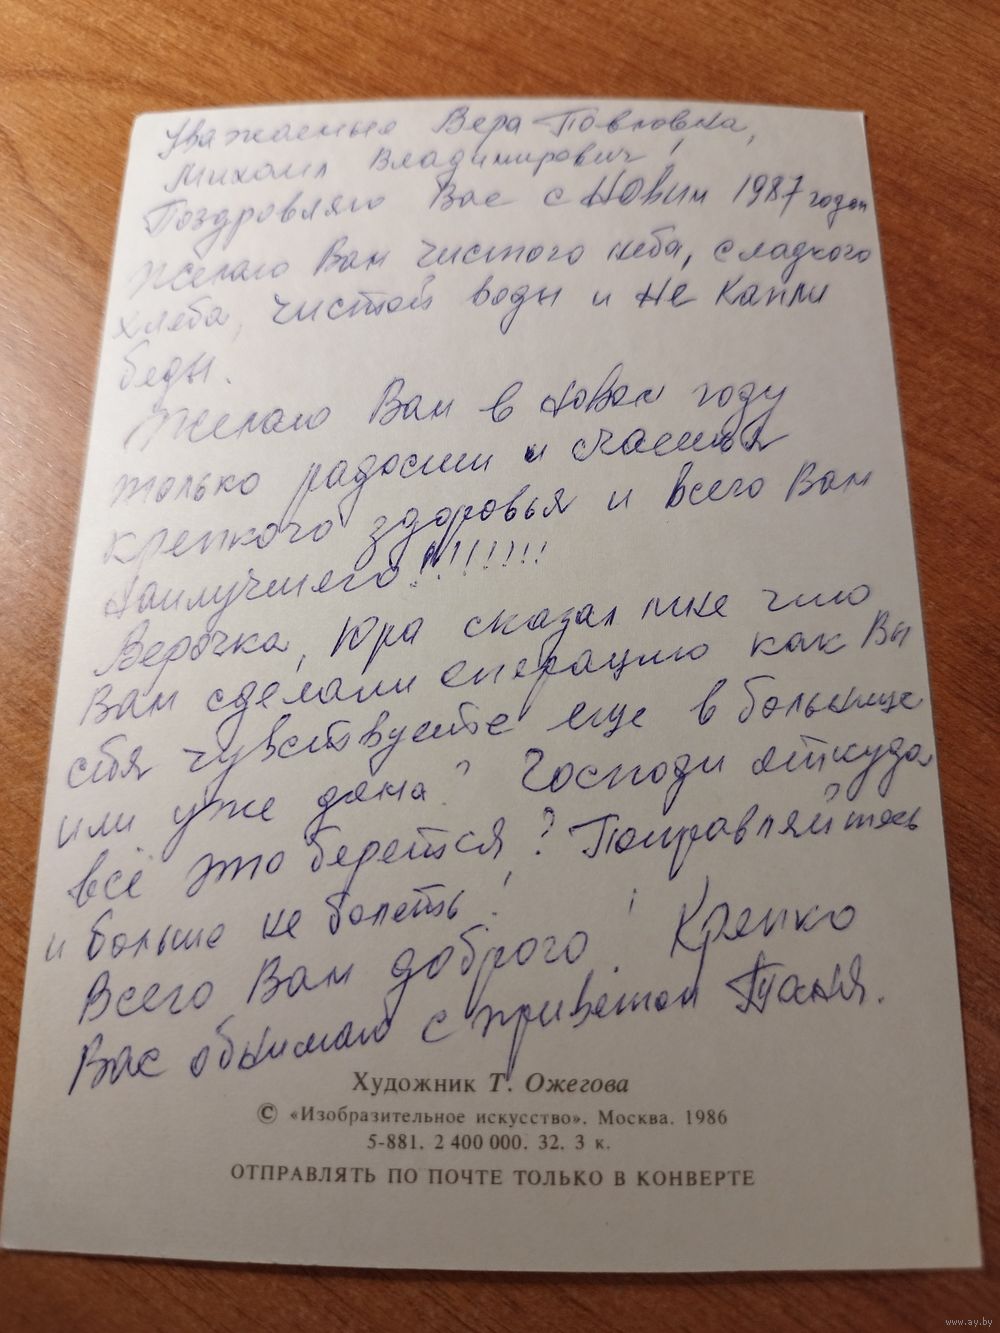 Уважаемые Вера Павловна,
Михаил Владимирович!
Поздравляю Вас с Новым 1987 годом
Желаю Вам чистого неба, сладкого
хлеба, чистой воды и не капли
беды.
Желаю Вам в новом году
только радости и счастья
крепкого здоровья и всего Вам
наилучшего!!!!!!!!
Верочка, Юра сказал мне что
Вам сделали операцию как Вы
себя чувствуете еще в больнице
или уже дома? Господи откуда
всё это берется? Поправляйтесь
и больше не болеть!
Всего Вам доброго! Крепко
Вас обнимаю с приветом Таня.
Художник Т. Ожегова
© «Изобразительное искусство». Москва. 1986
5-881. 2 400 000. 32. 3 к.
ОТПРАВЛЯТЬ ПО ПОЧТЕ ТОЛЬКО В КОНВЕРТЕ
www.ay.by